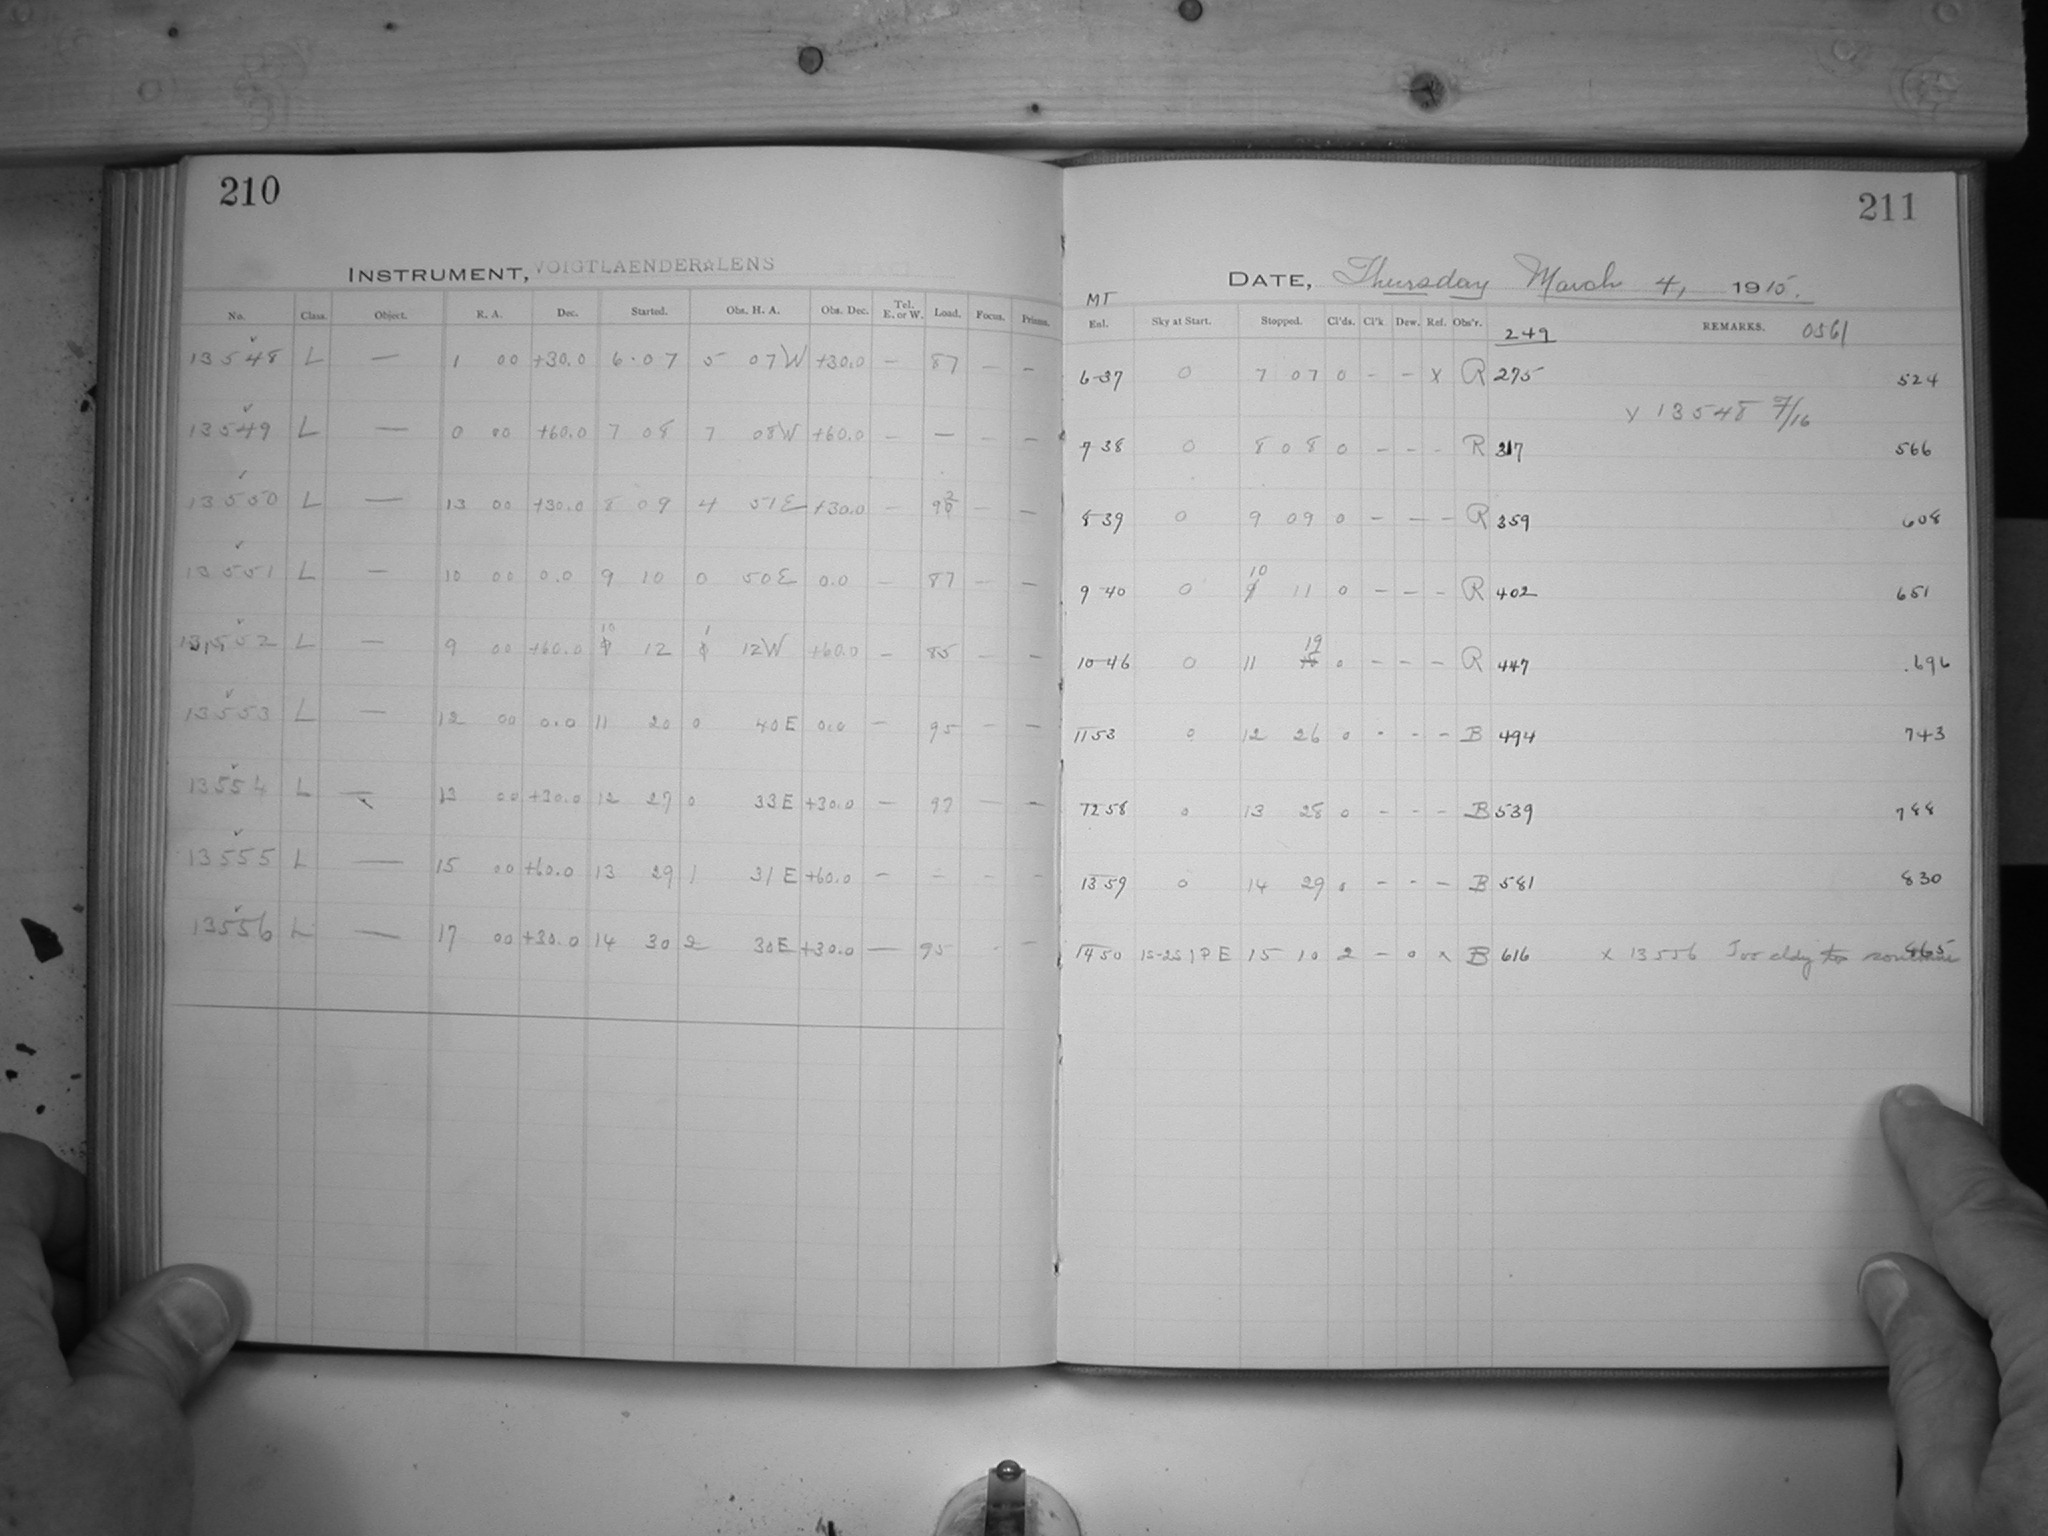 210
INSTRUMENT, VOIGTLAENDER LENS
No. Class. Object. R. A. Dec. Started. Obs. H. A. Obs. Dec. Tel. E. or W. Load. Focus. Prisms.
13548 L — 1 00 +30.0 6 07 5 07 W +30.0 — 87 — —
13549 L — 0 00 +60.0 7 08 7 08 W +60.0 — — — —
13550 L — 13 00 +30.0 8 09 4 51 E +30.0 — 92 — —
13551 L — 10 00 0.0 9 10 0 50 E 0.0 — 87 — —
13552 L — 9 00 +60.0 10 12 1 12 W +60.0 — 85 — —
13553 L — 12 00 0.0 11 20 0 40 E 0.0 — 95 — —
13554 L — 13 00 +30.0 12 27 0 33 E +30.0 — 97 — —
13555 L — 15 00 +60.0 13 29 1 31 E +60.0 — — — —
13556 L — 17 00 +30.0 14 30 2 30 E +30.0 — 95 - —
211
DATE, Thursday March 4, 1915.
MT
Sky at Start. Stopped. Cl'ds. Cl'k Dew. Ref. Obs'r. 249 REMARKS. 0561
6 37 0 7 07 0 - - x R 275 524
13548 7/16
7 38 0 8 08 0 - - - R 317 566
8 39 0 9 09 0 - - - R 359 608
9 40 0 10 11 0 - - - R 402 651
10 46 0 11 19 0 - - - R 447 696
11 53 0 12 26 0 - - - B 494 743
12 58 0 13 28 0 - - - B 539 788
13 59 0 14 29 0 - - - B 581 830
14 50 15-25 1PE 15 10 2 - 0 x B 616 x 13556 Too cldy to continue 865